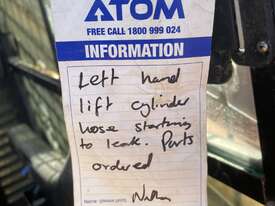 ATOM
FREE CALL 1800 999 024
INFORMATION
Left hand
lift cylinder
hose starting
to leak. Parts
ordered
Name (please print)